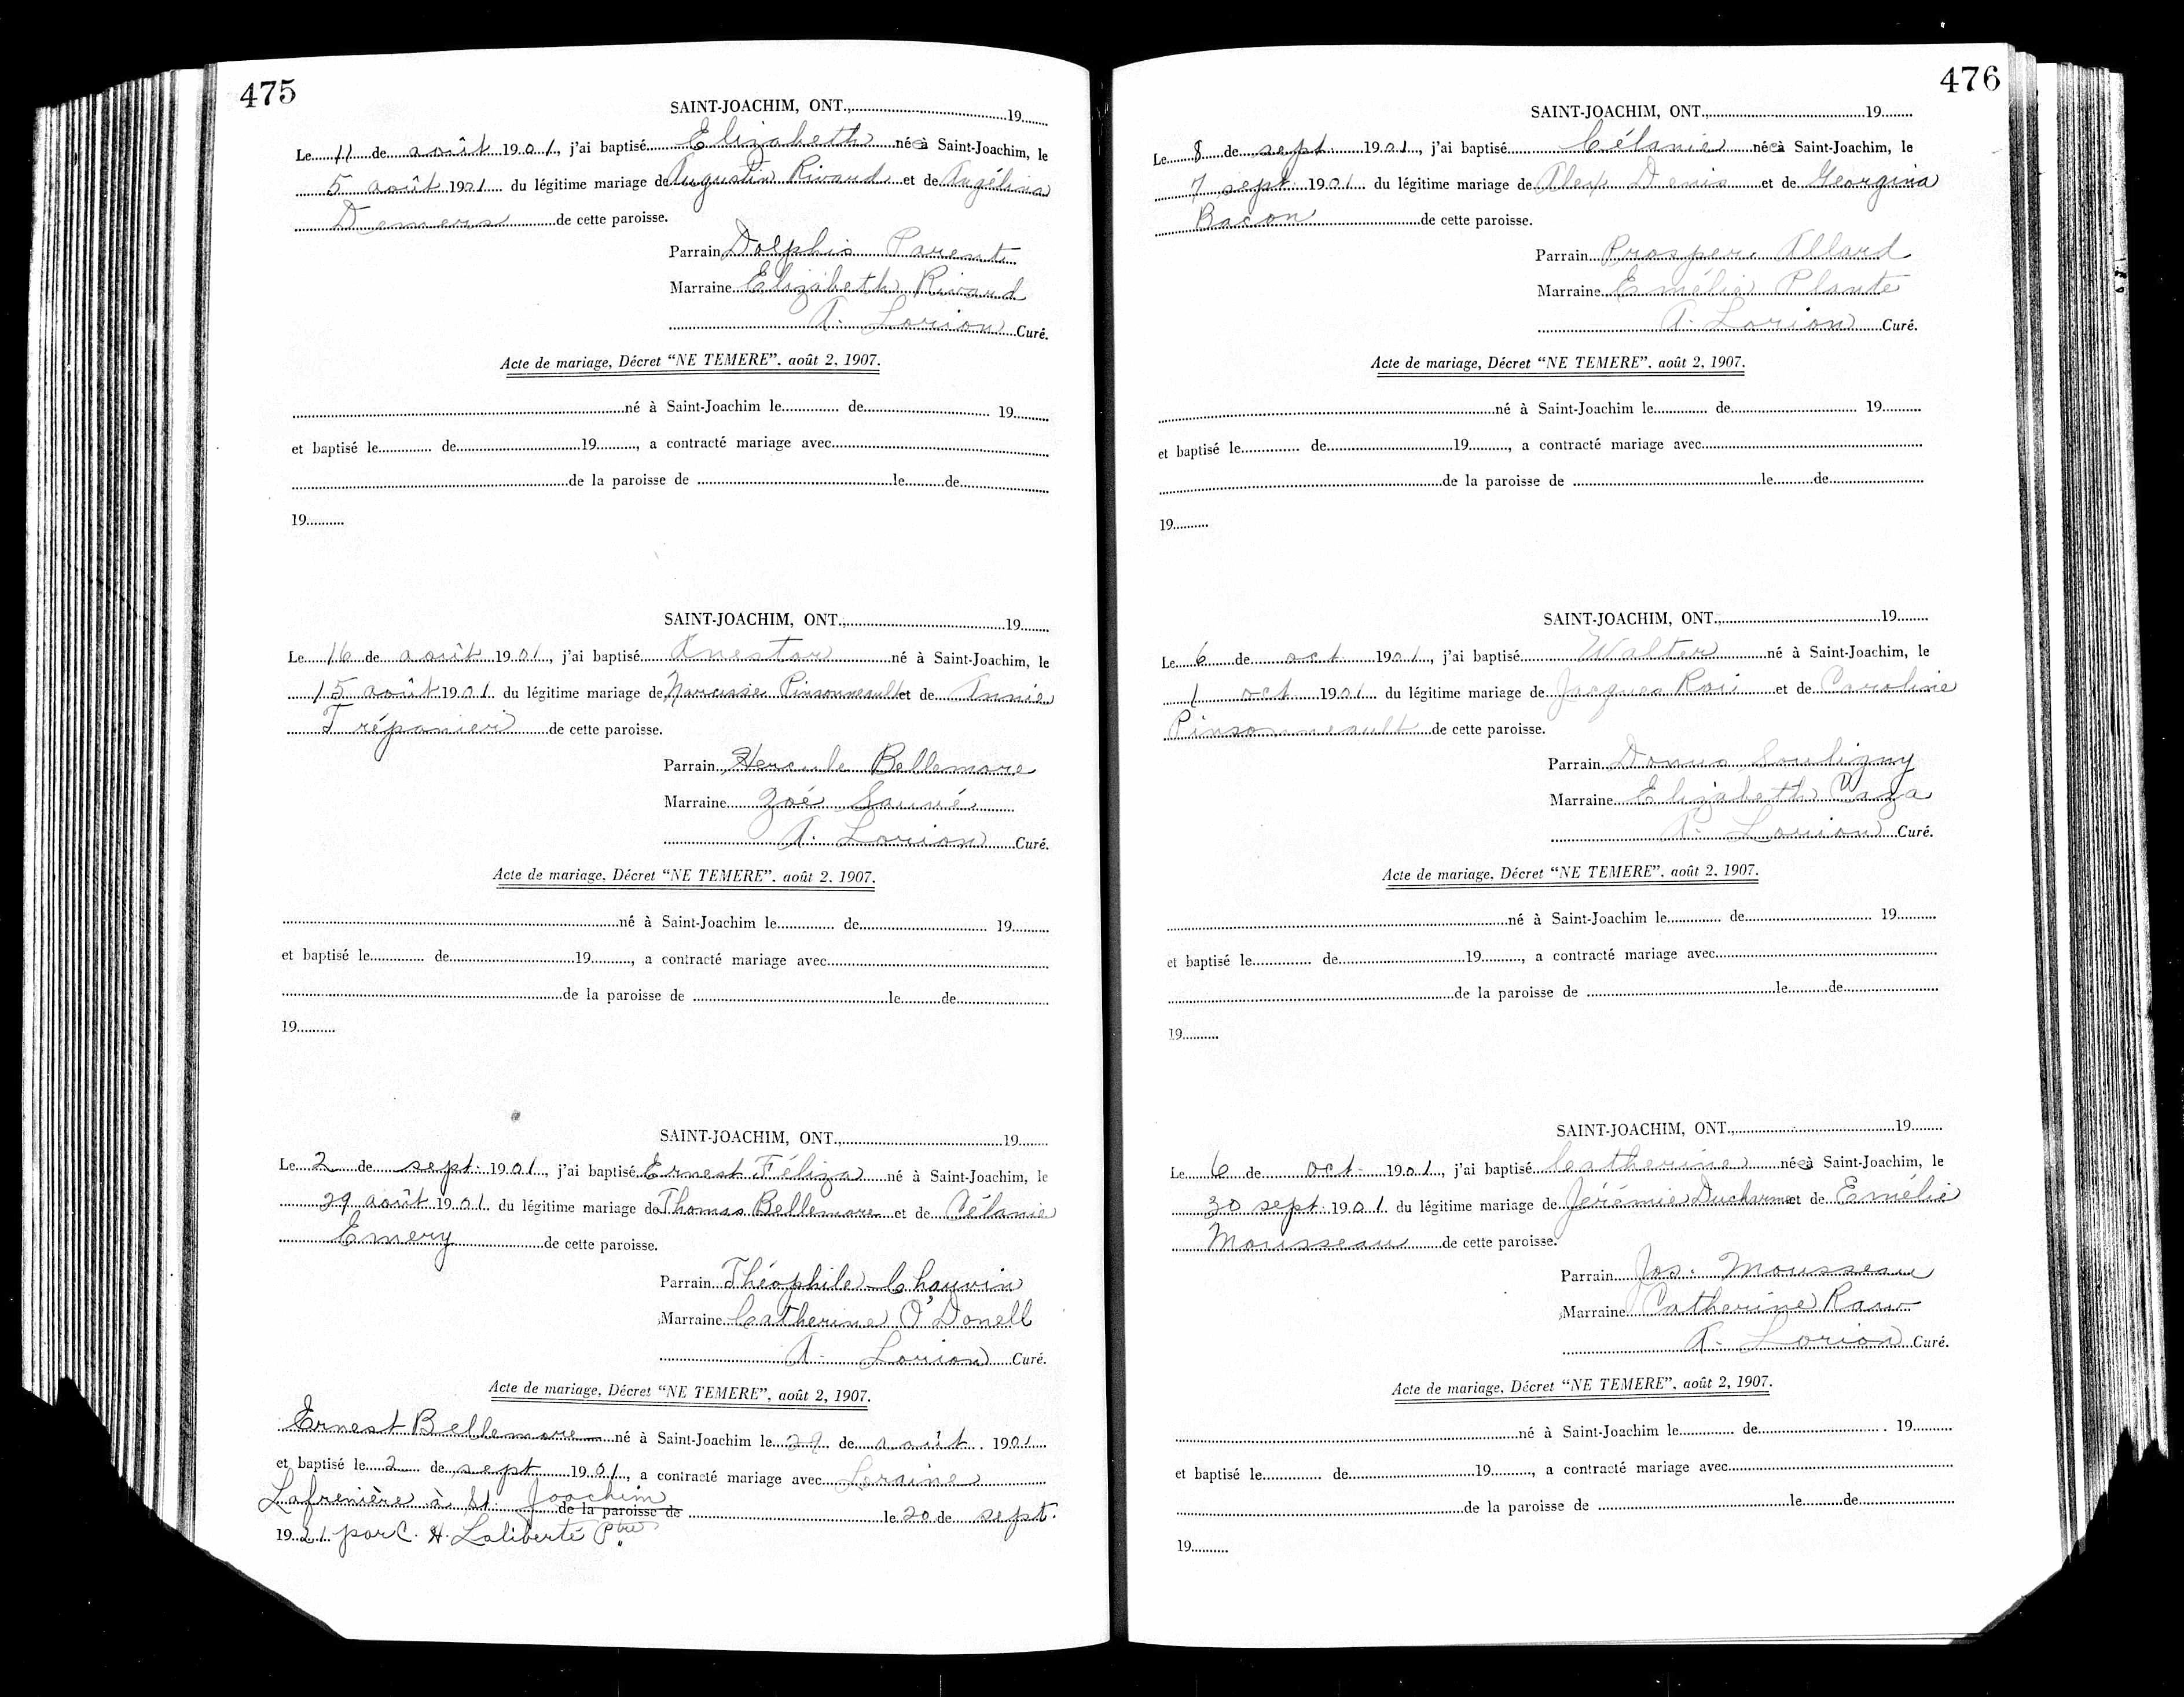 475
SAINT-JOACHIM, ONT.,..............................19.......
Le 11 de août 1901, j'ai baptisé Elizabeth née à Saint-Joachim, le
5 août 1901 du légitime mariage de Augustin Rivard et de Angélina
Demers de cette paroisse.
Parrain Dolphis Parent
Marraine Elizabeth Rivard
A. Lorion Curé.
Acte de mariage, Décret “NE TEMERE”. août 2, 1907.
..............................né à Saint-Joachim le.............. de.............................. 19.........
et baptisé le............. de..............................19.........., a contracté mariage avec..............................
..............................de la paroisse de ..............................le..........de..............................
19..........
SAINT-JOACHIM, ONT.,..............................19.......
Le 16 de août 1901, j'ai baptisé Anestor né à Saint-Joachim, le
15 août 1901 du légitime mariage de Narcisse Pinsonneault et de Annie
Trépanier de cette paroisse.
Parrain Hercule Bellemore
Marraine Zoé Sauvé
A. Lorion Curé.
Acte de mariage, Décret “NE TEMERE”. août 2, 1907.
..............................né à Saint-Joachim le.............. de.............................. 19.........
et baptisé le............. de..............................19.........., a contracté mariage avec..............................
..............................de la paroisse de ..............................le..........de..............................
19..........
SAINT-JOACHIM, ONT.,..............................19.......
Le 2 de sept. 1901, j'ai baptisé Ernest Féliza né à Saint-Joachim, le
29 août 1901 du légitime mariage de Thomas Bellemore et de Célanie
Emery de cette paroisse.
Parrain Théophile Chauvin
Marraine Catherine O'Donell
A. Lorion Curé.
Acte de mariage, Décret “NE TEMERE”, août 2, 1907.
Ernest Bellemore né à Saint-Joachim le 29 de août 1901
et baptisé le 2 de sept 1901, a contracté mariage avec Loraine
Lafrenière à St. Joachim de la paroisse de le 20 de sept.
1921 par C. H. Laliberté Ptre
476
SAINT-JOACHIM, ONT.,..............................19.......
Le 8 de sept. 1901, j'ai baptisé Célanie née à Saint-Joachim, le
7 sept. 1901 du légitime mariage de Alex Denis et de Georgina
Bacon de cette paroisse.
Parrain Prosper Allard
Marraine Emélie Plante
A. Lorion Curé.
Acte de mariage, Décret “NE TEMERE”. août 2, 1907.
..............................né à Saint-Joachim le.............. de.............................. 19.........
et baptisé le............. de..............................19.........., a contracté mariage avec..............................
..............................de la paroisse de ..............................le..........de..............................
19..........
SAINT-JOACHIM, ONT.,..............................19.......
Le 6 de oct. 1901, j'ai baptisé Walter né à Saint-Joachim, le
1 oct. 1901 du légitime mariage de Jacques Roi et de Caroline
Pinsonneault de cette paroisse.
Parrain Donus Souligny
Marraine Elizabeth Caza
A. Lorion Curé.
Acte de mariage, Décret “NE TEMERE”. août 2, 1907.
..............................né à Saint-Joachim le.............. de.............................. 19.........
et baptisé le............. de..............................19.........., a contracté mariage avec..............................
..............................de la paroisse de ..............................le..........de..............................
19..........
SAINT-JOACHIM, ONT.,..............................19.......
Le 6 de oct. 1901, j'ai baptisé Catherine née à Saint-Joachim, le
30 sept. 1901 du légitime mariage de Jérémie Ducharme et de Emélie
Mousseau de cette paroisse.
Parrain Jos. Mousseau
Marraine Catherine Raw
A. Lorion Curé.
Acte de mariage, Décret “NE TEMERE”. août 2, 1907.
..............................né à Saint-Joachim le.............. de.............................. 19.........
et baptisé le............. de..............................19.........., a contracté mariage avec..............................
..............................de la paroisse de ..............................le..........de..............................
19..........